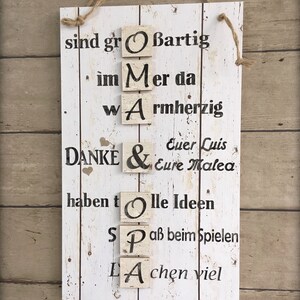 sind grOßartig
imMer da
wArmherzig
DANKE & Euer Luis
Eure Malea
haben tOlle Ideen
SPaß beim Spielen
LAchen viel